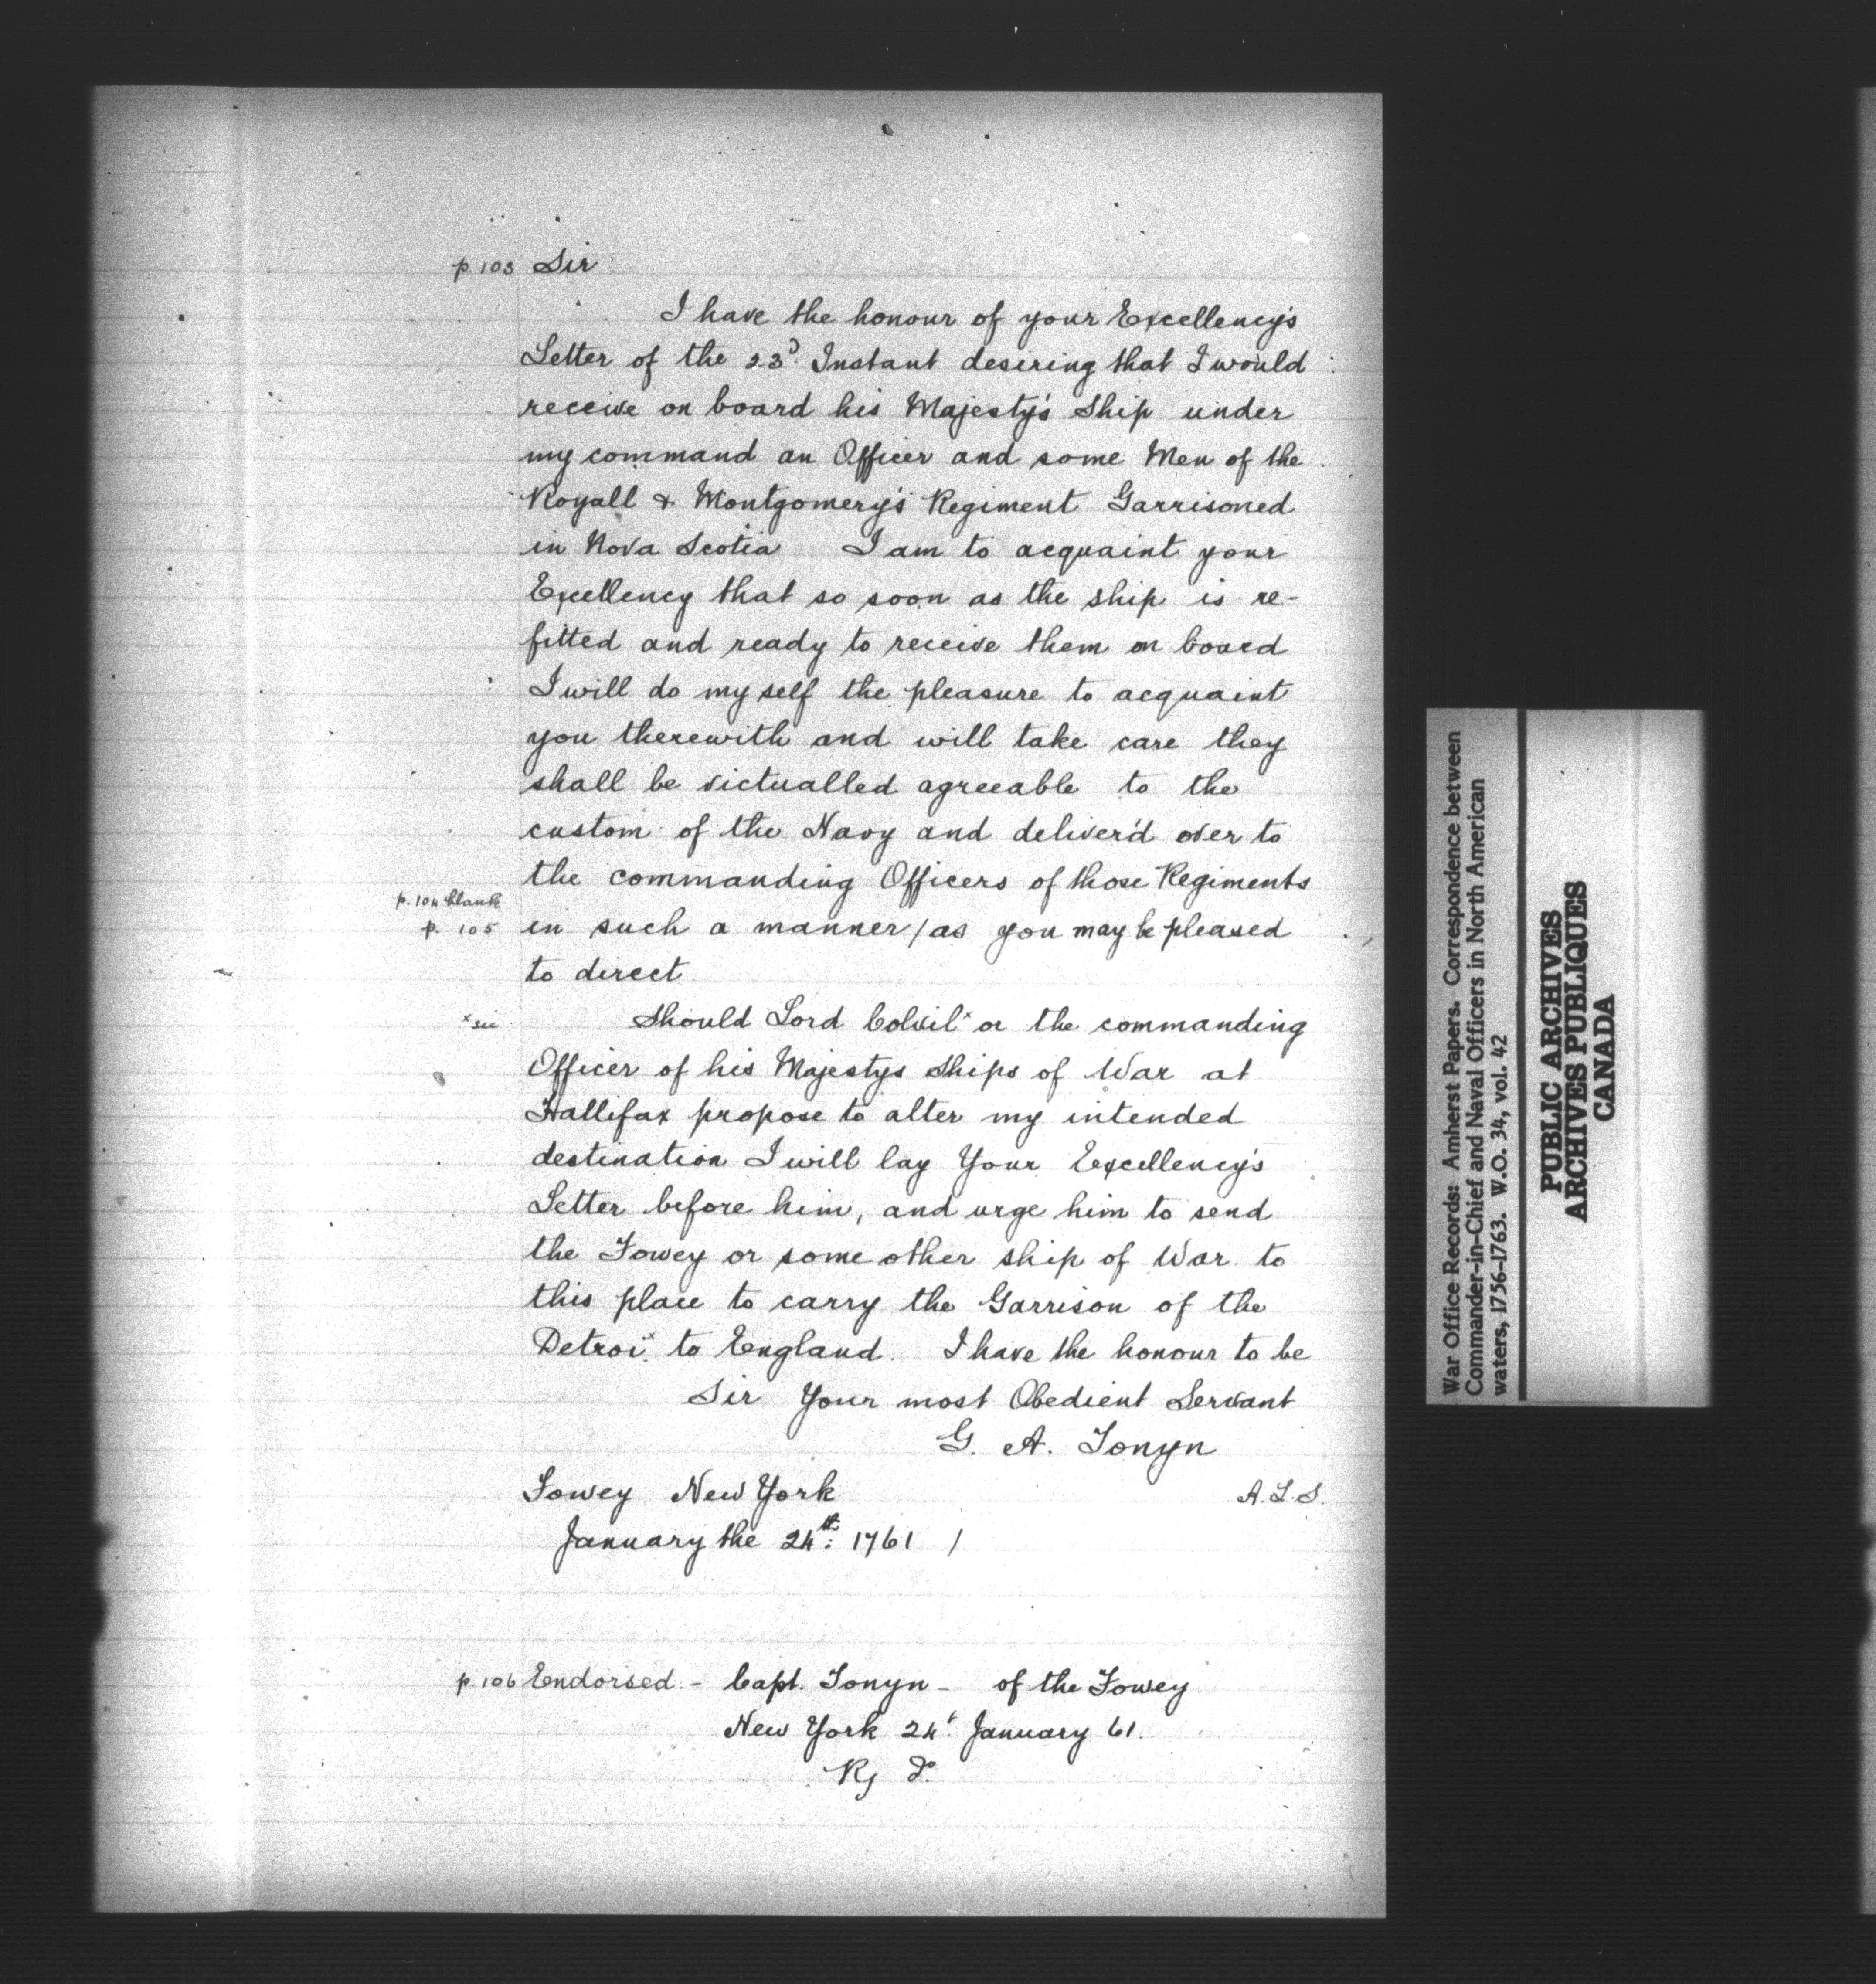 p. 103 Sir
I have the honour of your Excellency's
Letter of the 23d. Instant desiring that I would
receive on board his Majesty's Ship under
my command an Officer and some Men of the
Royall & Montgomery's Regiment Garrisoned
in Nova Scotia I am to acquaint your
Excellency that so soon as the ship is re-
fitted and ready to receive them on board
I will do my self the pleasure to acquaint
you therewith and will take care they
shall be victualled agreeable to the
custom of the Navy and deliver'd over to
the commanding Officers of those Regiments
p. 104 blank
p. 105 in such a manner / as you may be pleased
to direct
x sic Should Lord Colvil x or the commanding
Officer of his Majestys Ships of War at
Hallifax propose to alter my intended
destination I will lay Your Excellency's
Letter before him, and urge him to send
the Fowey or some other ship of War to
this place to carry the Garrison of the
Detroi x to England. I have the honour to be
Sir Your most Obedient Servant
G. A. Tonyn
Fowey New York A.L.S.
January the 24th: 1761 /
p. 106 Endorsed. - Capt. Tonyn - of the Fowey
New York 24t. January 61.
War Office Records: Amherst Papers. Correspondence between
Commander-in-Chief and Naval Officers in North American
waters, 1756-1763. W.O. 34, vol. 42
PUBLIC ARCHIVES
ARCHIVES PUBLIQUES
CANADA